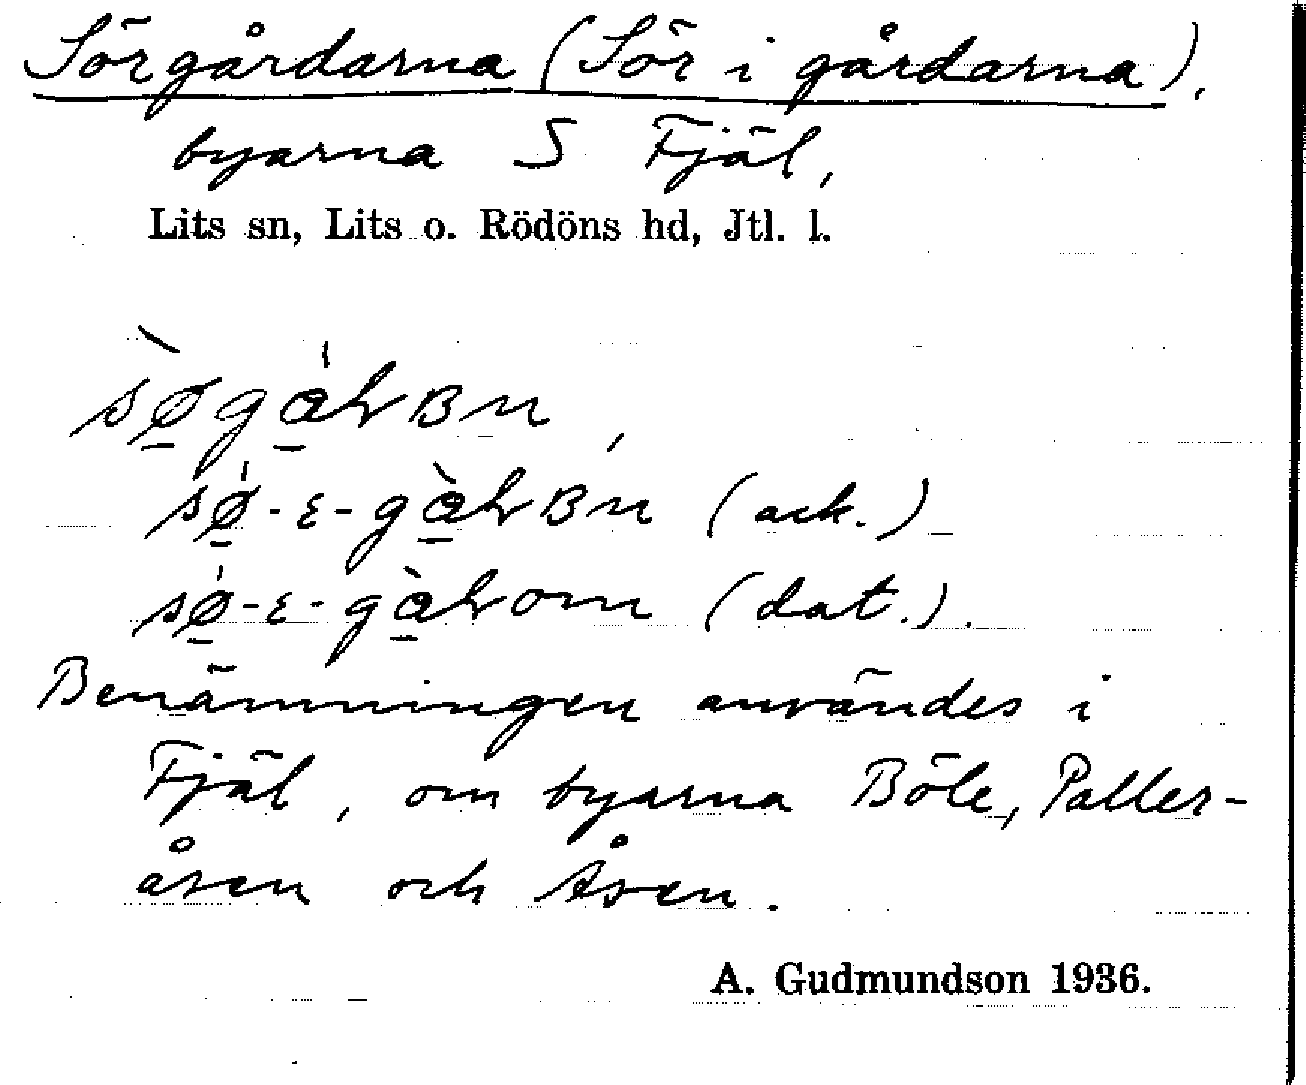 Sörgårdarna (Sör i gårdarna),
byarna S Fjäl,
Lits sn, Lits o. Rödöns hd, Jtl. l.
(ack.)
(dat.).
Benämningen användes i
Fjäl, om byarna Böle, Paller-
åsen och Åsen.
A. Gudmundson 1936.